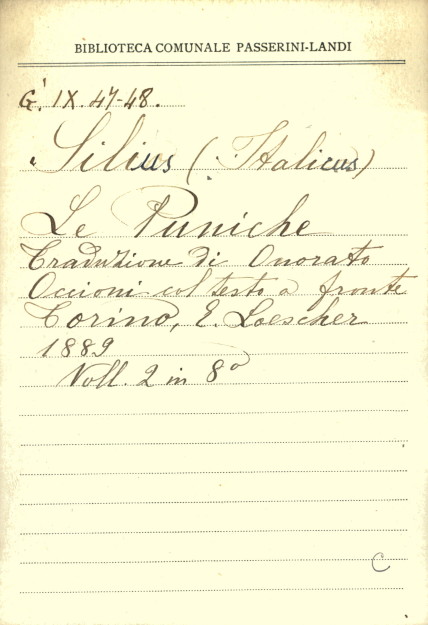 BIBLIOTECA COMUNALE PASSERINI-LANDI
G'. IX. 47-48.
Silius (Italicus)
Le Puniche
Traduzione di Onorato
Occioni col testo a fronte
Torino, E. Loescher
1889
Voll. 2 in 8º
C